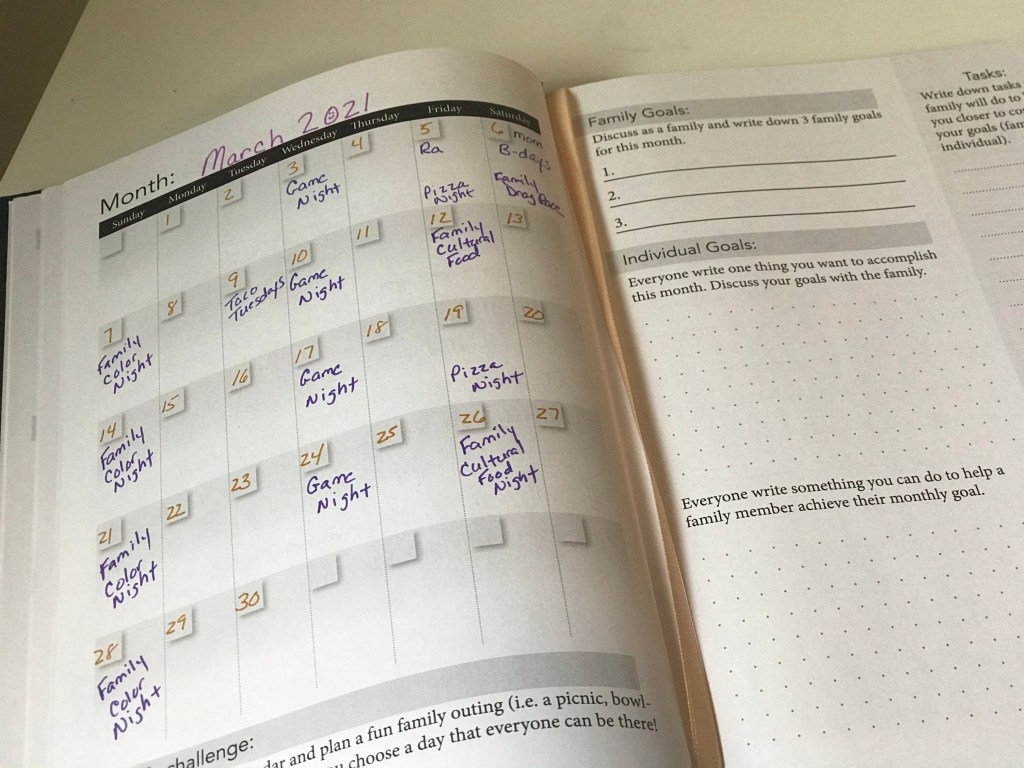 Month: March 2021
Sunday Monday Tuesday Wednesday Thursday Friday Saturday
1
2
3
Game
Night
4
5
Ra
Pizza
Night
6 mom
B-days
Family
Drag Race
7
Family
Color
Night
8
9
Taco
Tuesdays
10
Game
Night
11
12
Family
Cultural
Food
13
14
Family
Color
Night
15
16
17
Game
Night
18
19
Pizza
Night
20
21
Family
Color
Night
22
23
24
Game
Night
25
26
Family
Cultural
Food
Night
27
28
Family
Color
Night
29
30
challenge:
dar and plan a fun family outing (i.e. a picnic, bowl-
choose a day that everyone can be there!
Family Goals:
Discuss as a family and write down 3 family goals
for this month.
1.
2.
3.
Individual Goals:
Everyone write one thing you want to accomplish
this month. Discuss your goals with the family.
Everyone write something you can do to help a
family member achieve their monthly goal.
Tasks:
Write down tasks
family will do to
you closer to
your goals
individual).